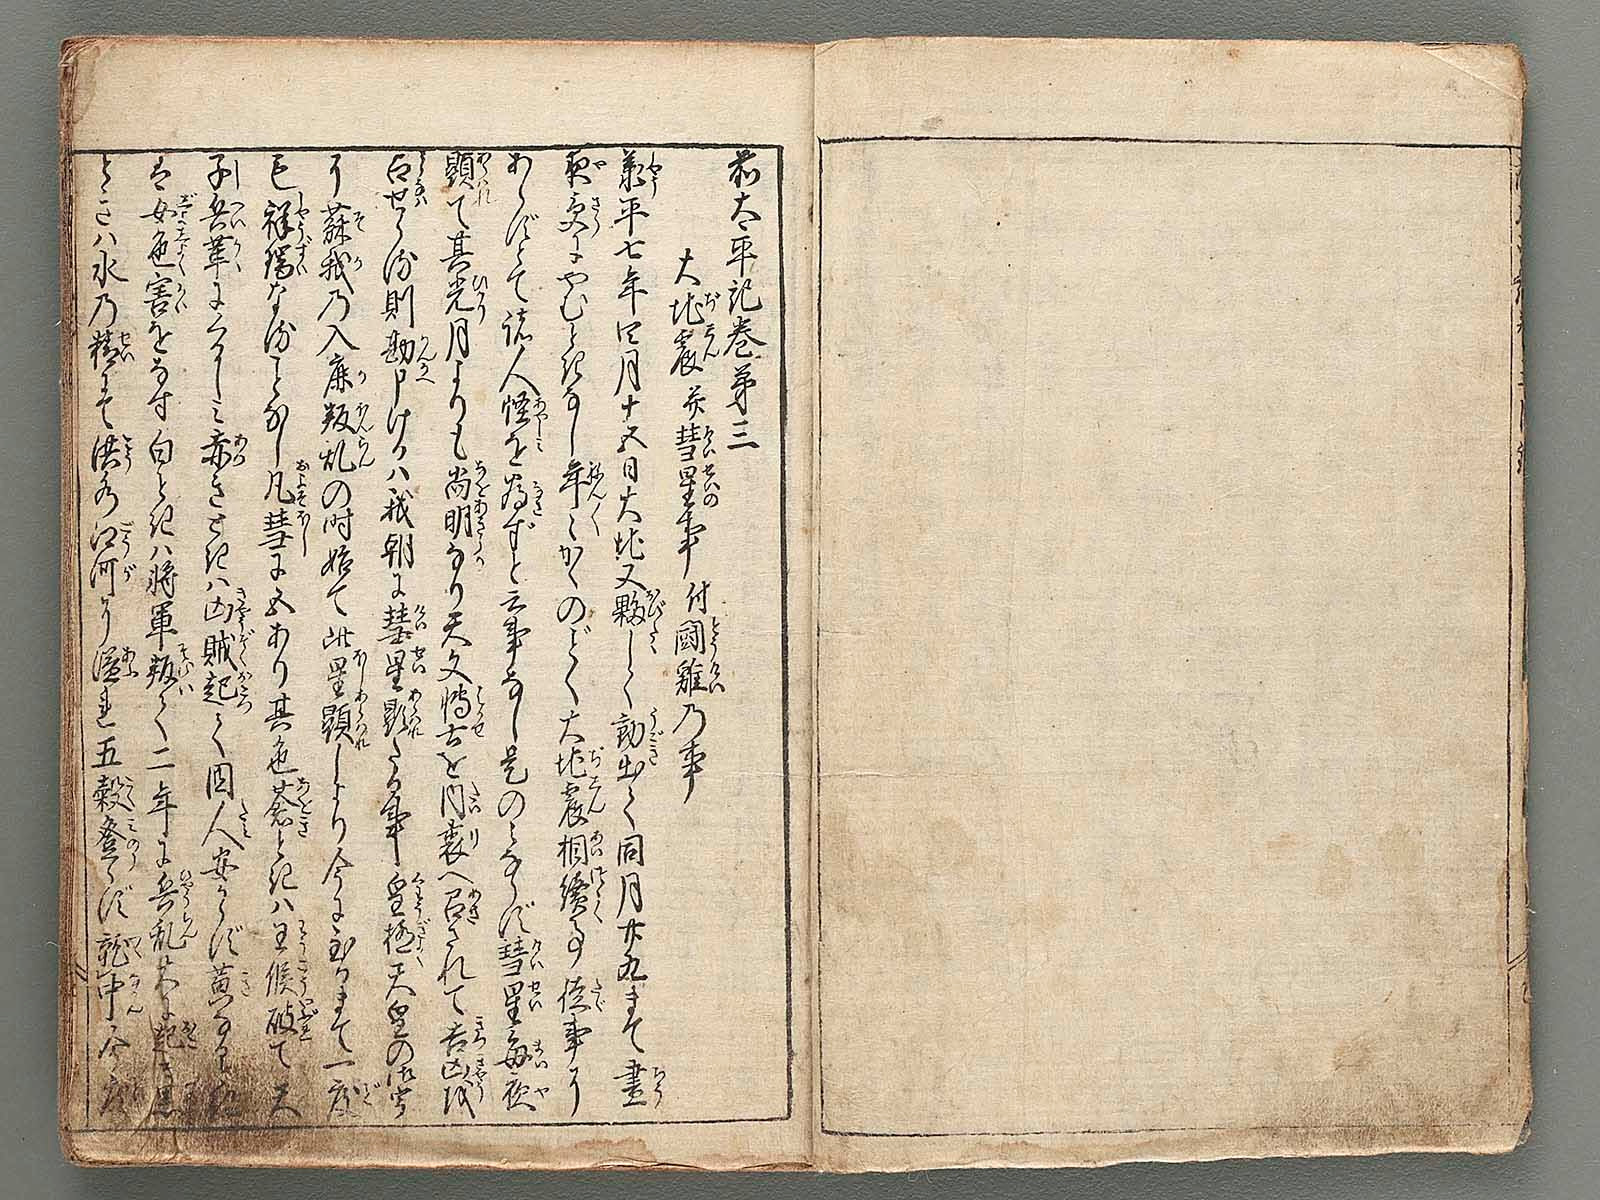 前太平記巻第三
大地震并彗星事 付闘雞乃事
承平七年四月十五日大地又夥しく動出て同月廿九まて昼
夜更にやむときなし年々かくのごとく大地震相続事徒事に
あらずとて諸人怪を為ずと云事なし是のミならず彗星毎夜
顕て其光月よりも尚明なり天文博士を内裏へ召されて吉凶を
占せらる則勘申けるハ我朝に彗星顕たる事 皇極天皇の御宇
に蘇我乃入鹿叛乱の時始て此星顕しより今に至るまて一度
も祥瑞なる事なし凡彗に五あり其色蒼ときハ王侯破て天
子兵革にくるしミ赤きときハ凶賊起て国人安からず黄なるときハ
女色害をなす白ときハ将軍叛て二年に兵乱大に起き黒
ときハ水乃精にて洪水江河に溢れ五穀登らず就中今度